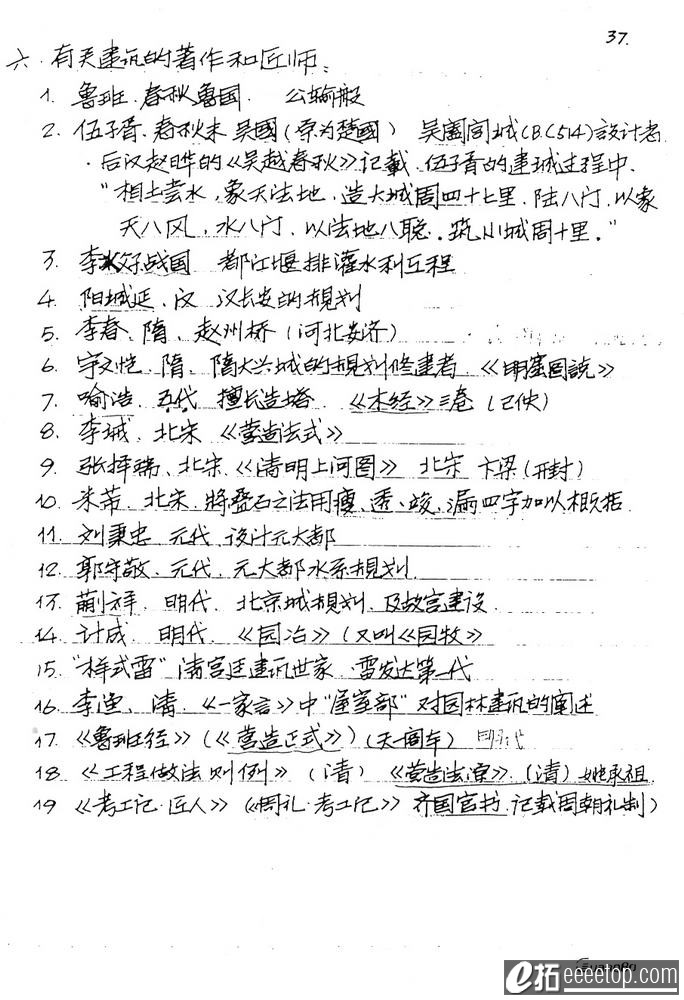 37.
六. 有关建筑的著作和匠师:
1. 鲁班. 春秋鲁国. 公输般
2. 伍子胥. 春秋末 吴國(原为楚國) 吴阖闾城(B.C514)設計者.
· 后汉赵晔的《吴越春秋》记載. 伍子胥的建城过程中.
"相土尝水,象天法地,造大城周四十七里.陆八门.以象
天八风,水八门.以法地八聪.筑小城周十里."
3. 李冰 战国 都江堰排灌水利工程
4. 阳城延.汉 汉长安的規划
5. 李春、隋、赵州桥(河北安济)
6. 宇文恺. 隋. 隋大兴城的規划修建者. 《明堂图説》
7. 喻浩. 五代 擅长造塔. 《木经》三卷(已佚)
8. 李诫、北宋《营造法式》
9. 张择瑞、北宋.《清明上河图》 北宋 卞梁(开封)
10. 米芾、北宋.將叠石之法用瘦、透、皱、漏四字加以相概括.
11. 刘秉忠 元代.设计元大都
12. 郭守敬、元代.元大都水系規划.
13. 蒯祥. 明代. 北京城規划.及故宫建设.
14. 计成. 明代. 《园冶》(又叫《园牧》
15. "样式雷"清宫廷建筑世家. 雷发达第一代
16. 李渔、清.《一家言》中"居室部"对园林建筑的阐述
17. 《鲁班经》(《营造正式》)(天一阁本) 明代
18. 《工程做法则例》(清) 《营造法源》.(清)姚承祖.
19 《考工记·匠人》(《周礼·考工记》 齐国官书.记载周朝礼制)
e拓 eeeetop.com